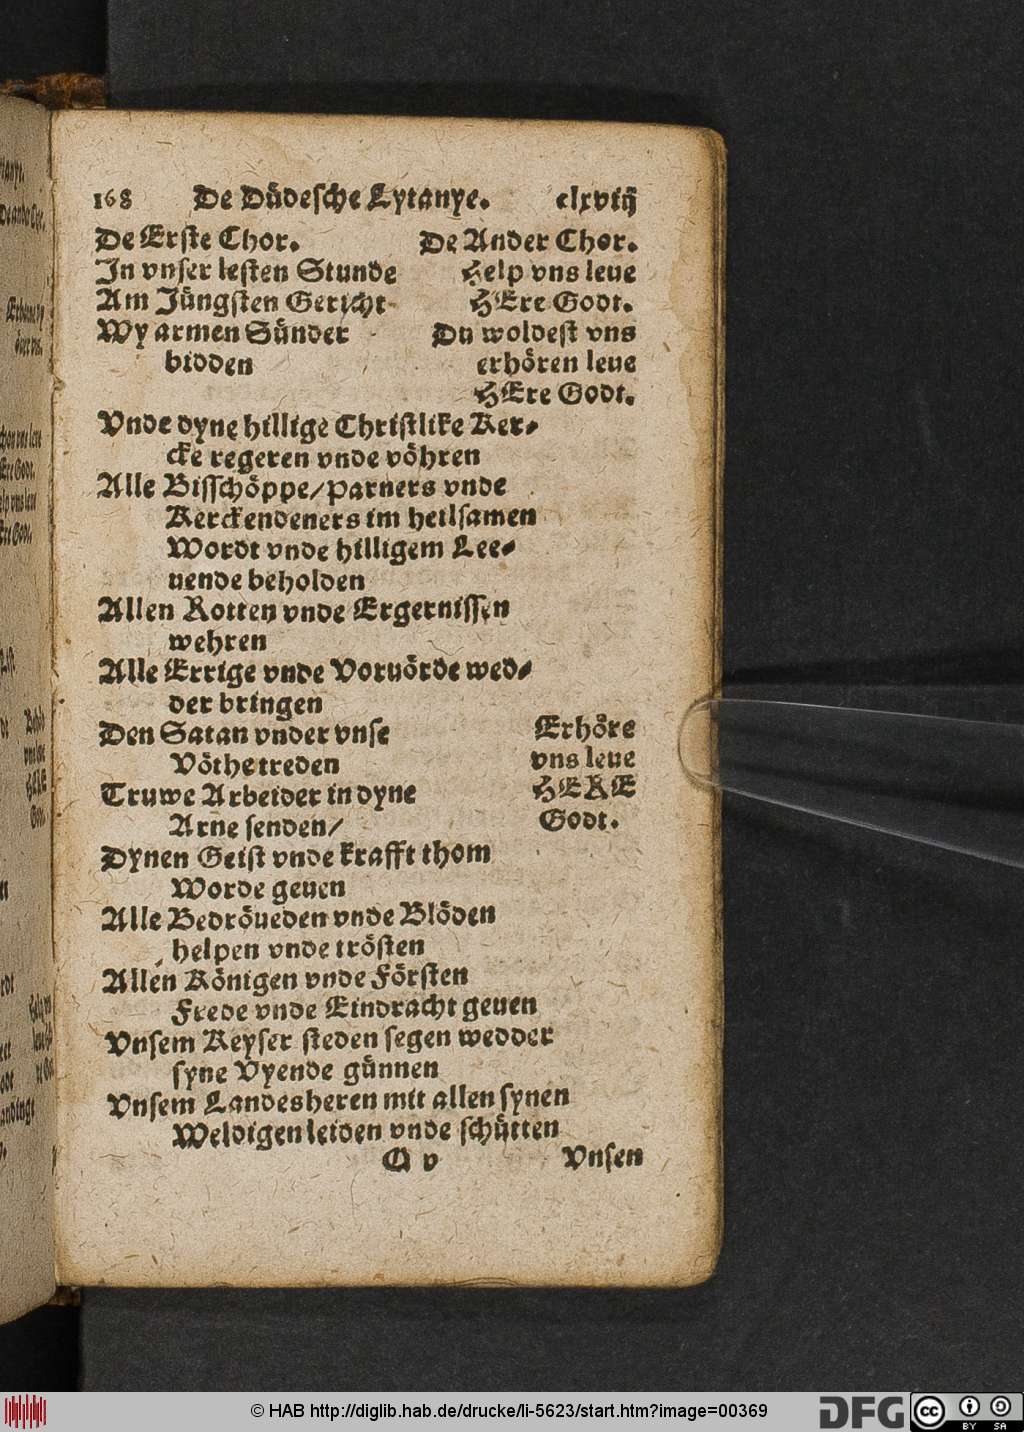 168 De Düdesche Lytanye. clxviij
De Erste Chor. De Ander Chor.
In vnser lesten Stunde Help vns leue
Am Jüngsten Gericht HEre Godt.
Wy armen Sünder Du woldest vns
bidden erhören leue
HEre Godt.
Vnde dyne hillige Christlike Ker-
cke regeren vnde vöhren
Alle Bisschöppe/ Parners vnde
Kerckendeners im heilsamen
Wordt vnde hilligem Lee-
uende beholden
Allen Rotten vnde Ergernissen
wehren
Alle Errige vnde Voruörde wed-
der bringen
Den Satan vnder vnse Erhöre
Vöthe treden vns leue
Truwe Arbeider in dyne HERE
Arne senden/ Godt.
Dynen Geist vnde krafft thom
Worde geuen
Alle Bedröueden vnde Blöden
helpen vnde trösten
Allen Königen vnde Försten
Frede vnde Eindracht geuen
Vnsem Keyser steden segen wedder
syne Vyende günnen
Vnsem Landesheren mit allen synen
Weldigen leiden vnde schütten
Q v Vnsen
© HAB http://diglib.hab.de/drucke/li-5623/start.htm?image=00369
DFG
cc BY SA